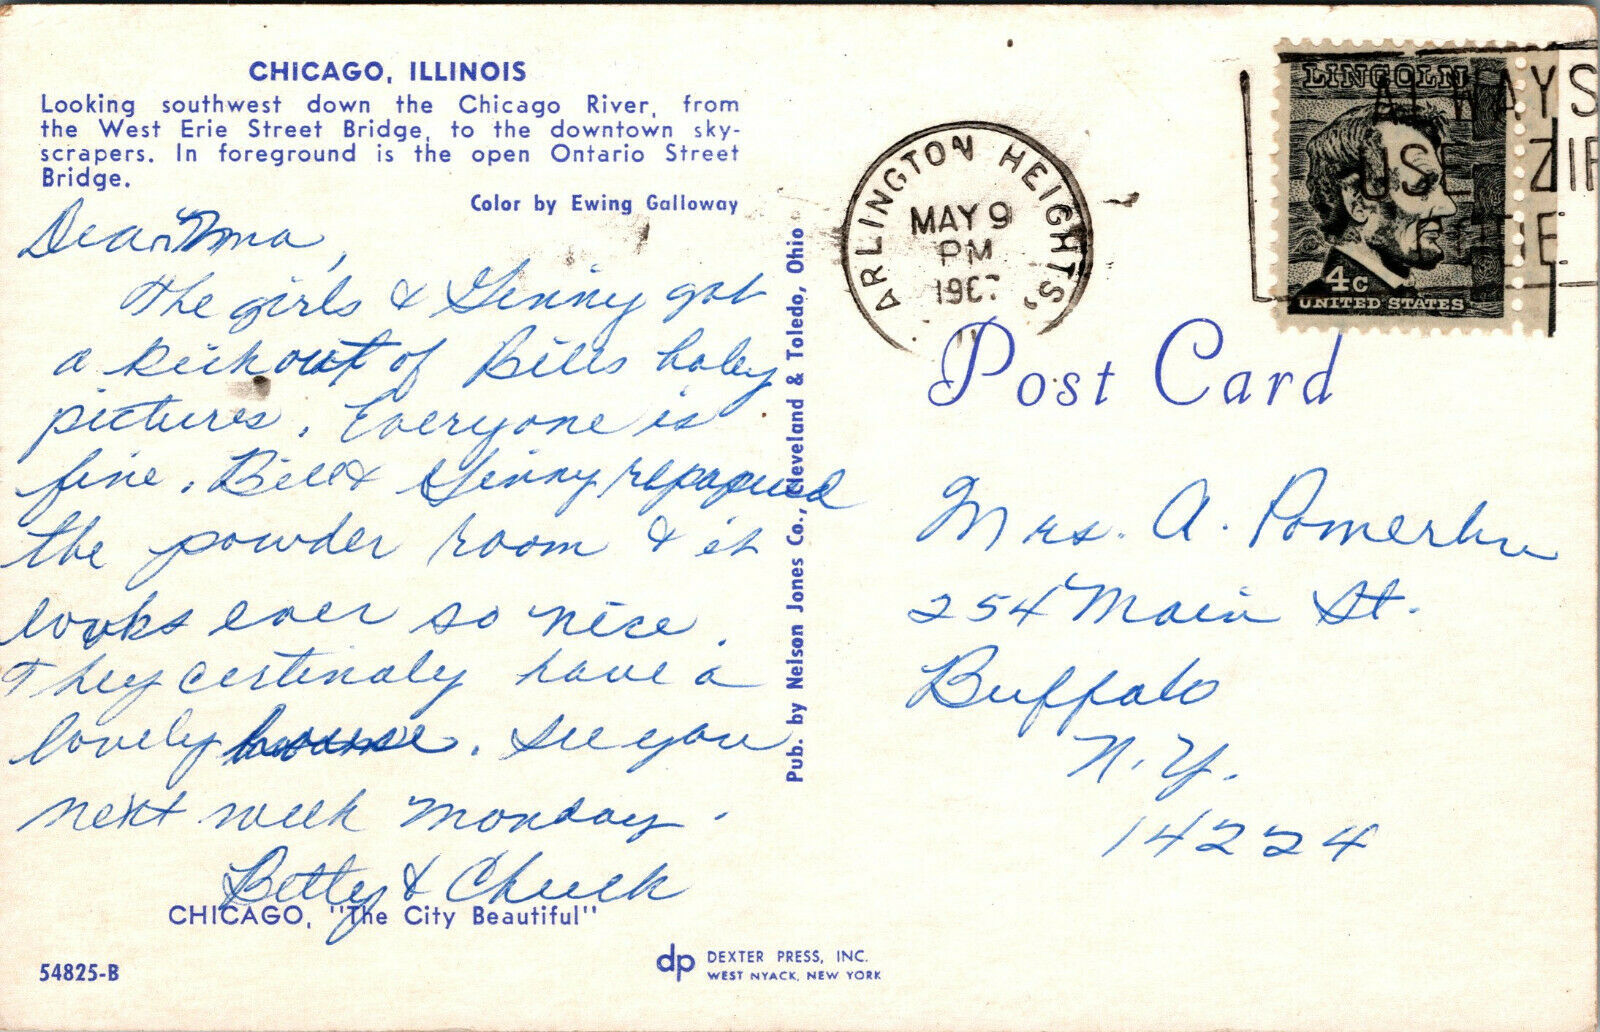 CHICAGO, ILLINOIS
Looking southwest down the Chicago River, from
the West Erie Street Bridge, to the downtown sky-
scrapers. In foreground is the open Ontario Street
Bridge.
Color by Ewing Galloway
Dear Mma,
The girls & Ginny got
a kick out of Bills baby
pictures. Everyone is
fine. Bill & Ginny repapered
the powder room & it
looks ever so nice.
They certinaly have a
lovely house. See you
next week Monday.
Betty & Chuck
CHICAGO, "The City Beautiful"
54825-B
dp DEXTER PRESS, INC.
WEST NYACK, NEW YORK
Pub. by Nelson Jones Co., Cleveland & Toledo, Ohio
ARLINGTON HEIGHTS,
MAY 9
PM
196
LINCOLN
4c
UNITED STATES
ALWAYS
USE ZIP
Post Card
Mrs. A.
254 Main St.
Buffalo
N.Y.
14224